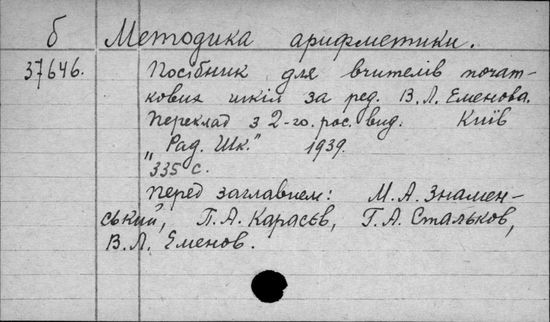 б Методика арифметики.
37646. Посібник для вчителів почат-
кових шкіл за ред. В.Л. Еменова.
Переклад з 2-го рос. вид. Київ
„Рад. Шк.” 1939.
335 с.
Перед заглавием: М.А. Знамен-
ський, П.А. Карасьв, Г.А. Стальков,
В.Л. Еменов.